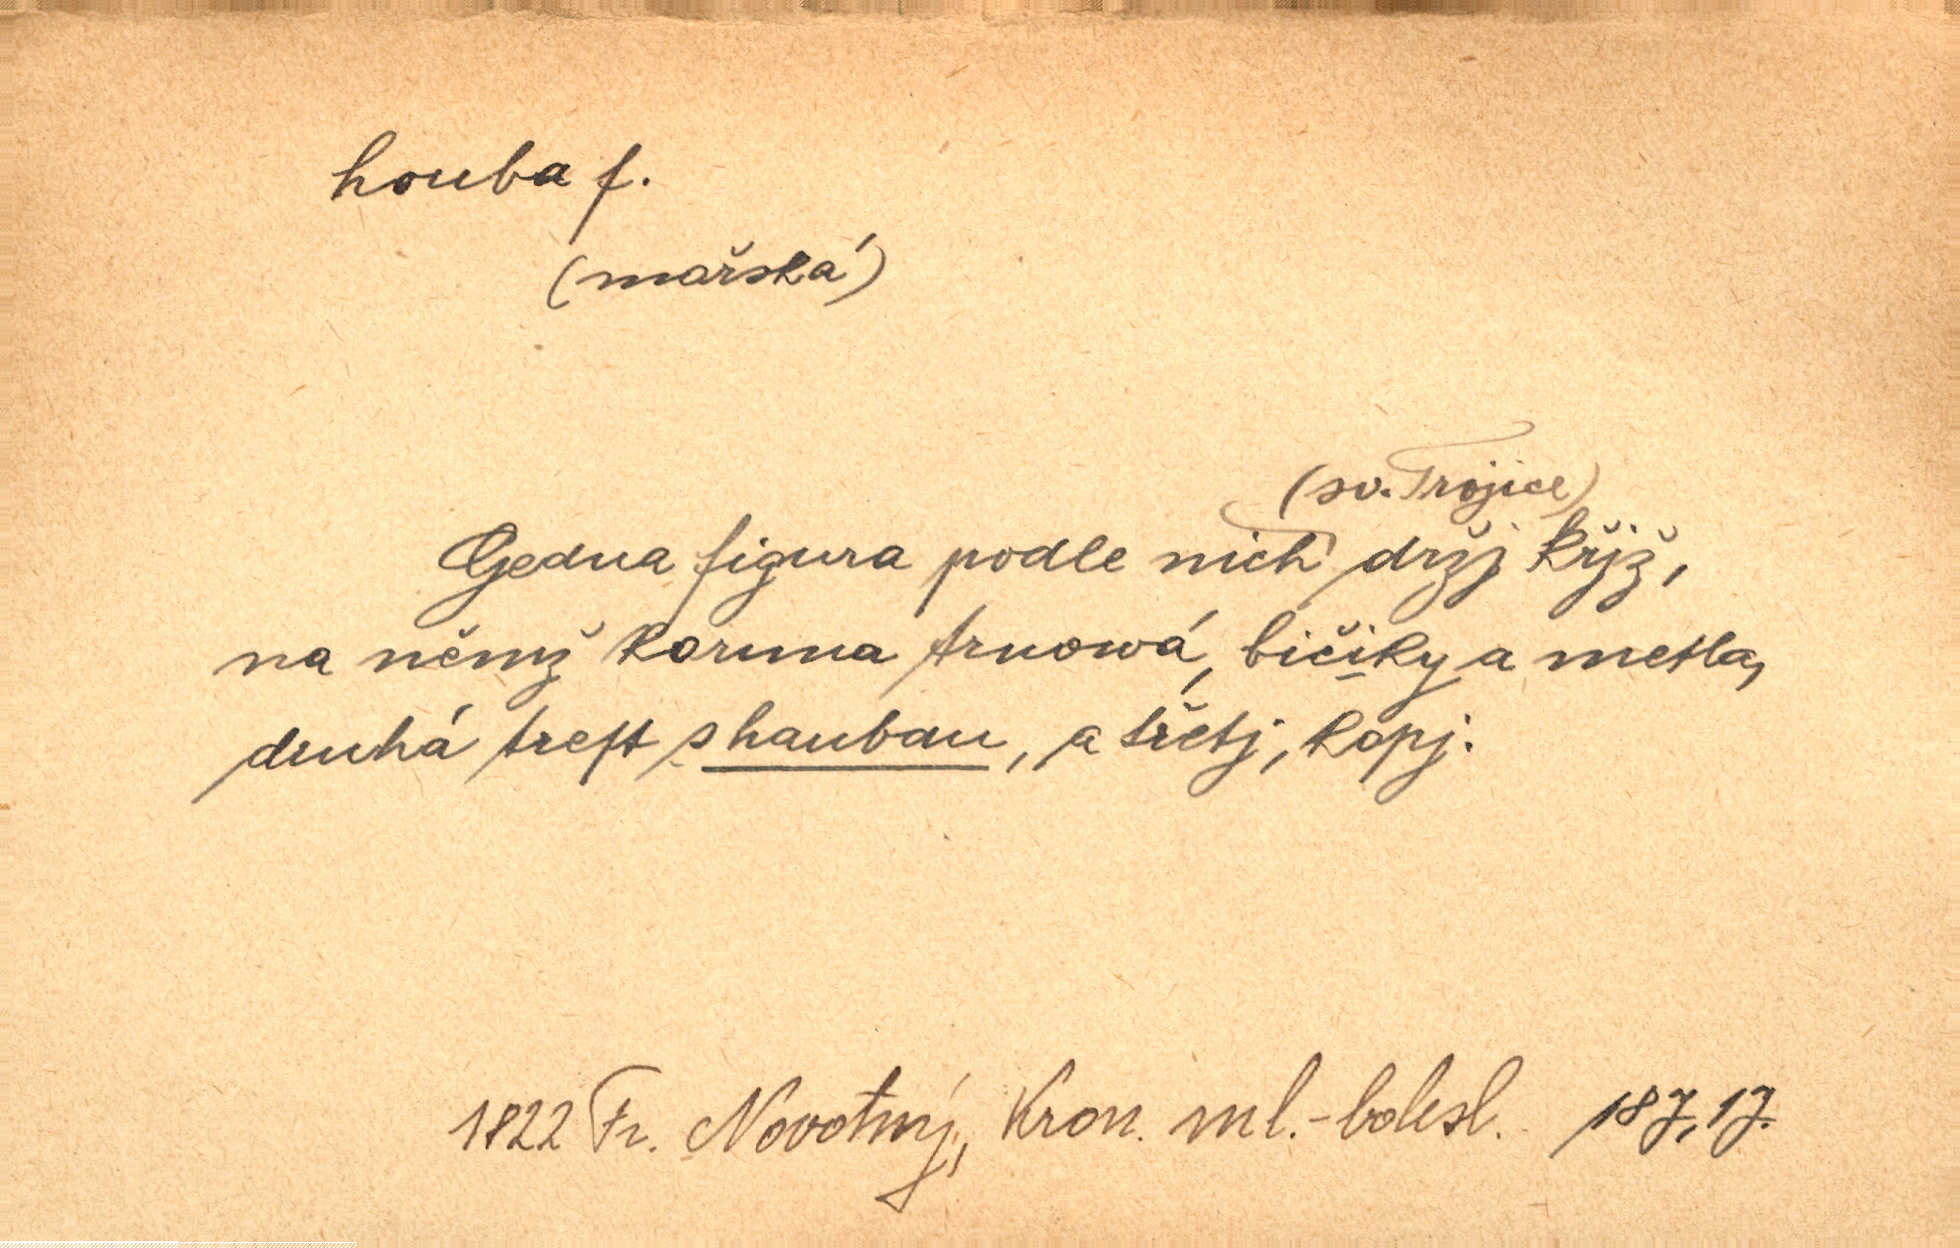 houba f.
(mařská)
(sv. Trojice)
Gedna figura podle nich držj křjž,
na němž koruna trnowá, bičiky a metla,
druhá treſt s haubau, a třetj, kopj.
1822 Fr. Novotný, Kron. ml.-bolesl. 187,17.